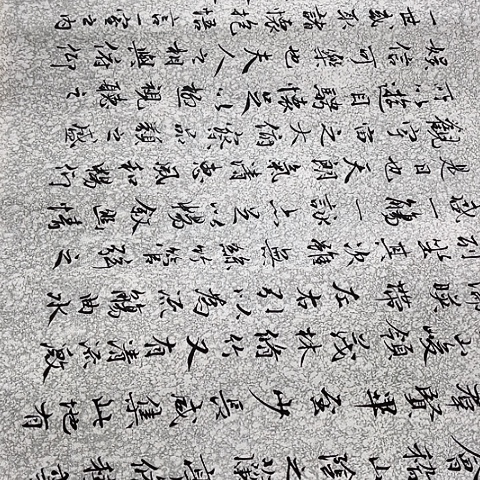 會稽山陰之蘭亭脩禊事
羣賢畢至少長咸集此地有
山峻領茂林脩竹又有清流激
湍暎帶左右引以為流觴曲水
列坐其次雖無絲竹管弦之
盛一觴一詠亦足以暢敘幽情
是日也天朗氣清惠風和暢仰
觀宇宙之大俯察品類之盛
所以遊目騁懷足以極視聽之
娛信可樂也夫人之相與俯仰
一世或取諸懷抱悟言一室之內